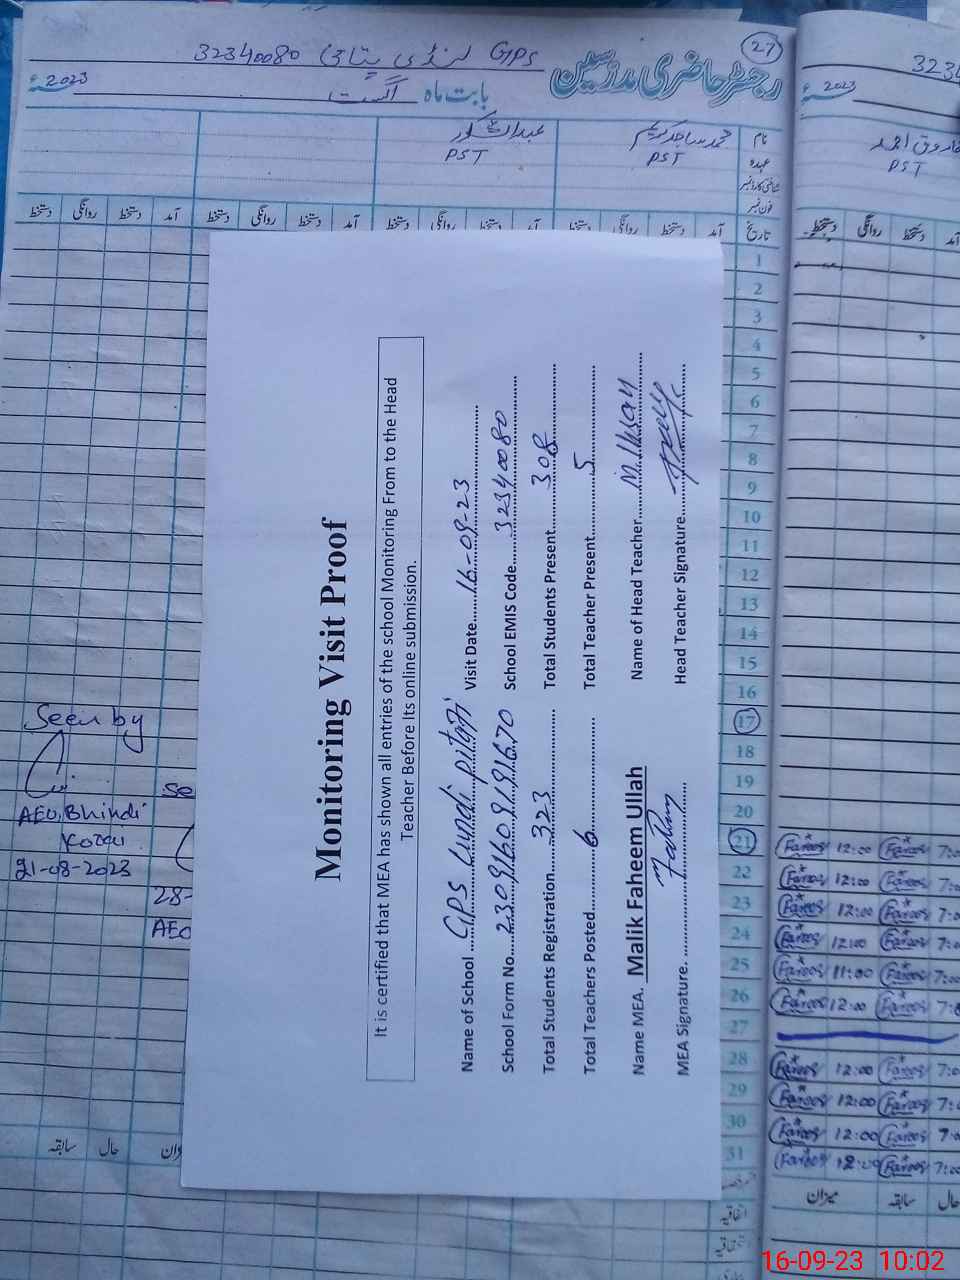 27
32340080 لنڈی پتافی GPS
رجسٹر حاضری مدرسین
2023ء
بابت ماہ اگست
نام
محمد ساجد کریم
عبدالشکور
عہدہ
PST
PST
فون نمبر
تاریخ
آمد دستخط روانگی دستخط آمد دستخط روانگی دستخط آمد دستخط روانگی دستخط آمد دستخط روانگی دستخط
1
2
3
4
5
6
7
8
9
10
11
12
13
14
15
16
17
18
19
20
21
22
23
24
25
26
27
28
29
30
31
Monitoring Visit Proof
It is certified that MEA has shown all entries of the school Monitoring From to the Head
Teacher Before Its online submission.
Name of School GPS Lundi pitafi Visit Date 16-09-23
School Form No. 23091609191670 School EMIS Code 32340080
Total Students Registration 323 Total Students Present 308
Total Teachers Posted 6 Total Teacher Present 5
Name MEA. Malik Faheem Ullah Name of Head Teacher M. Ihsan
MEA Signature. Head Teacher Signature
Seen by
AEO, Bhindi
Korai
21-08-2023
28-
AEO
میزان حال سابقہ
اتفاقیہ
2023ء
فاروق احمد
PST
آمد دستخط روانگی دستخط
7:0 Farooq 12:00 Farooq
7:0 Farooq 12:00 Farooq
7:0 Farooq 12:00 Farooq
7:0 Farooq 12:00 Farooq
7:0 Farooq 11:00 Farooq
7:0 Farooq 12:00 Farooq
7:0 Farooq 12:00 Farooq
7:0 Farooq 12:00 Farooq
7:0 Farooq 12:00 Farooq
7:0 Farooq 12:00 Farooq
حال سابقہ میزان
16-09-23 10:02